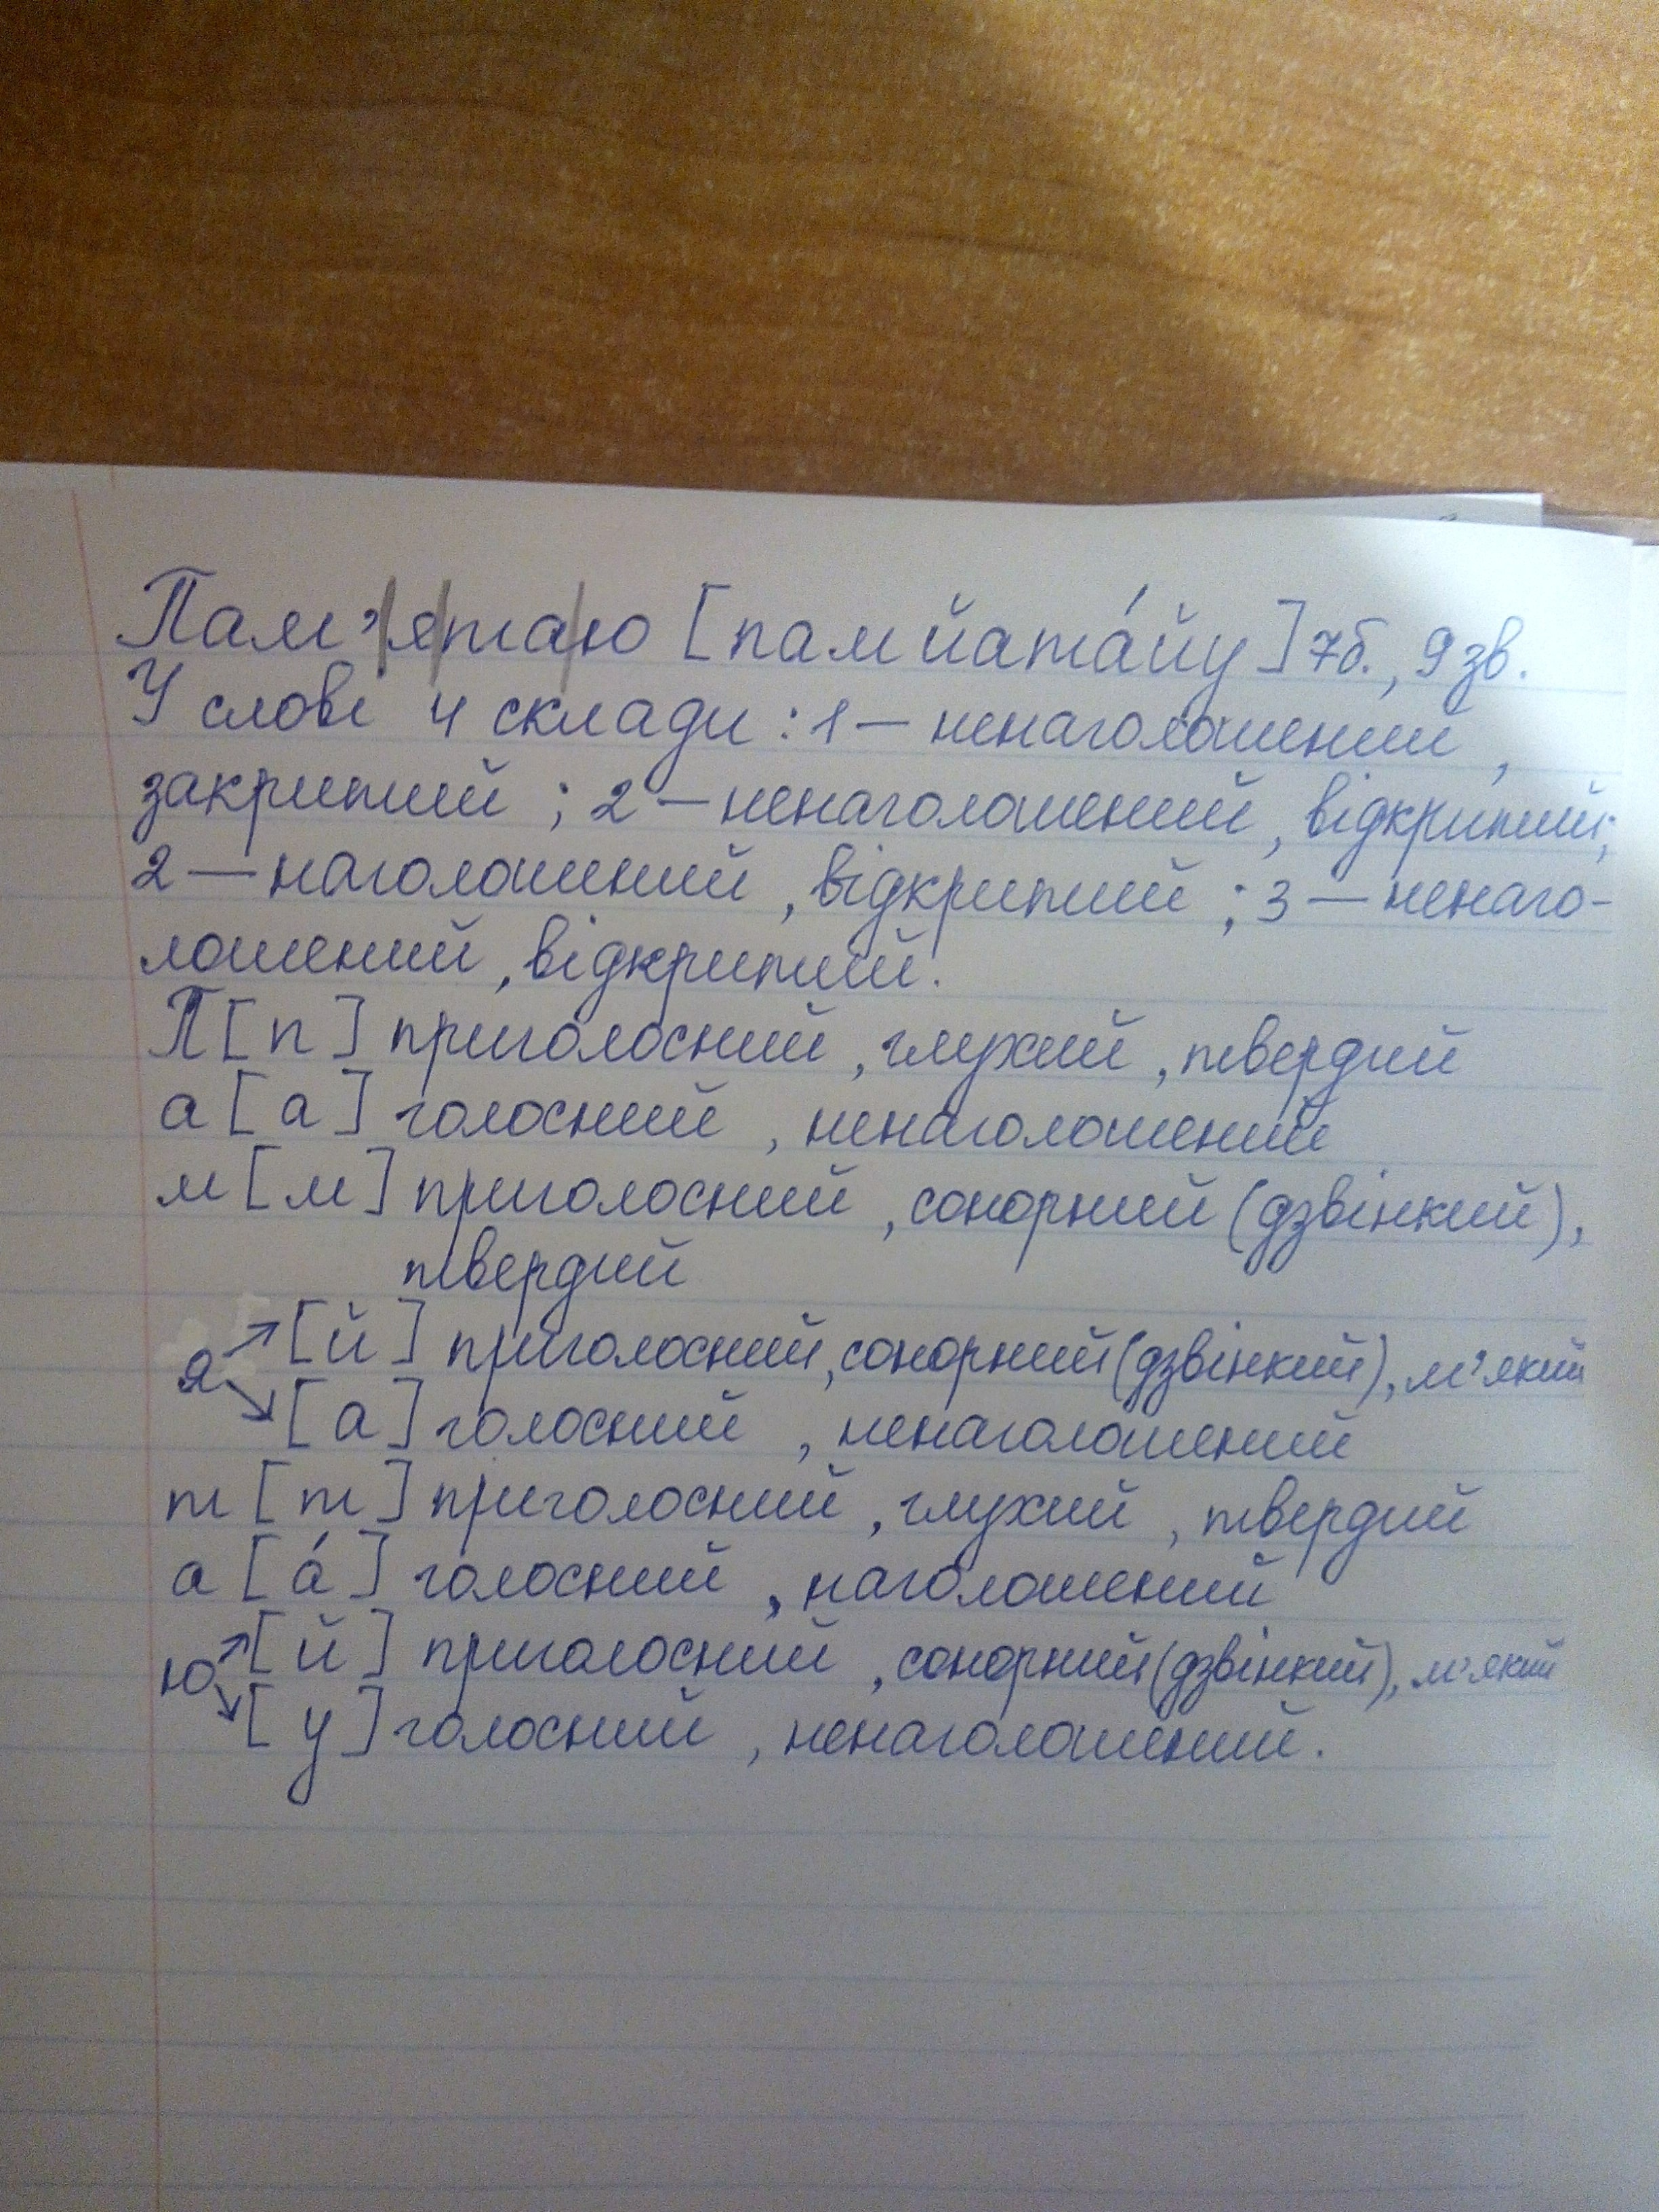 Пам'|я|та|ю [памйата́йу] 7б., 9 зв.
У слові 4 склади : 1 — ненаголошений ,
закритий ; 2 — ненаголошений , відкритий;
2 — наголошений , відкритий ; 3 — ненаго-
лошений , відкритий.
П [п] приголосний , глухий , твердий
а [а] голосний , ненаголошений
м [м] приголосний , сонорний (дзвінкий),
твердий
я ↗ [й] приголосний, сонорний (дзвінкий), м'який
↘ [а] голосний , ненаголошений
т [т] приголосний , глухий , твердий
а [а́] голосний , наголошений
ю ↗ [й] приголосний , сонорний (дзвінкий), м'який
↘ [у] голосний , ненаголошений.